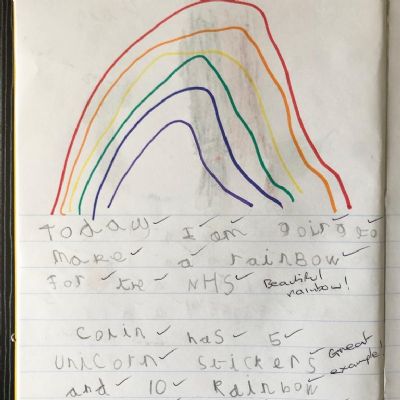 Today I am going to
make a rainBow
For the NHS Beautiful rainbow!
Corin has 5
Unicorn stickers Great example!
and 10 Rainbow